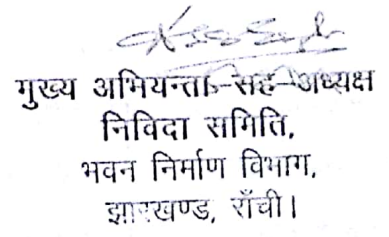 मुख्य अभियन्ता-सह-अध्यक्ष
निविदा समिति,
भवन निर्माण विभाग,
झारखण्ड, राँची।